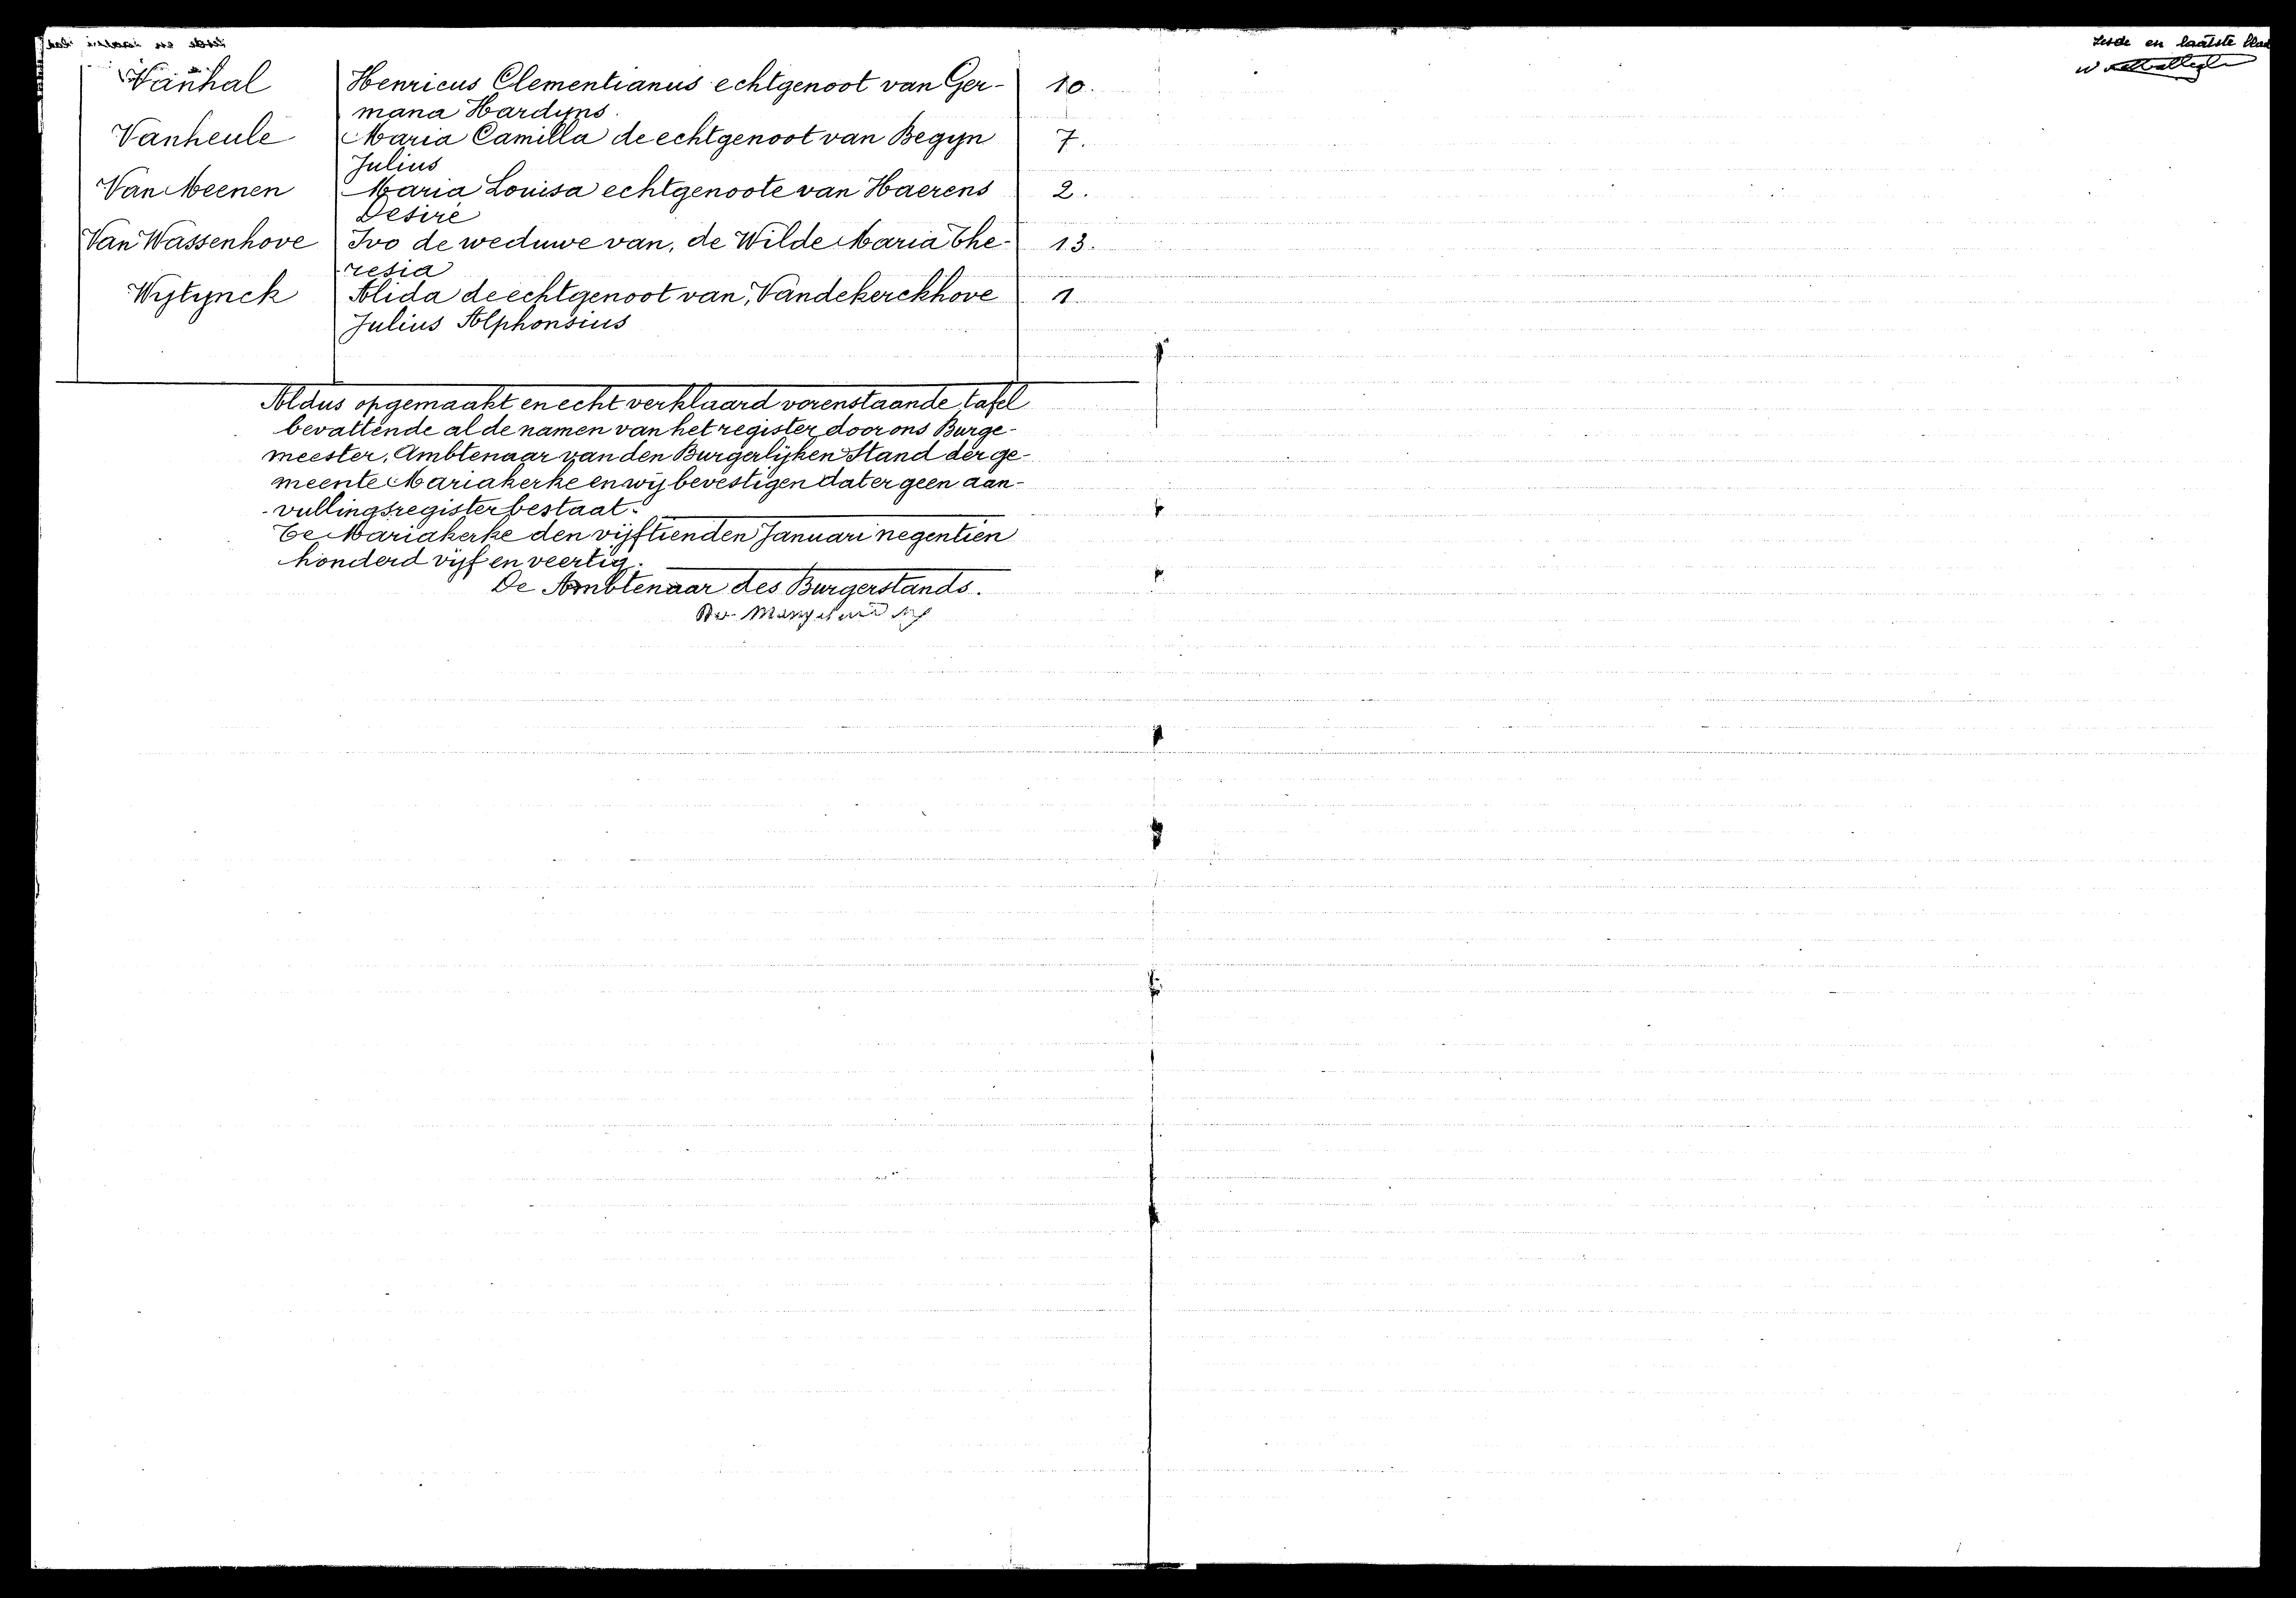 Vanhal Henricus Clementianus echtgenoot van Ger- 10.
mana Hardyns.
Vanheule Maria Camilla de echtgenoot van Begyn 7.
Julius
Van Meenen Maria Louisa echtgenoote van Haerens 2.
Desiré
Van Wassenhove Ivo de weduwe van, de Wilde Maria The- 13.
resia
Wytynck Alida de echtgenoot van, Vandekerckhove 1
Julius Alphonsius
Aldus opgemaakt en echt verklaard vorenstaande tafel
bevattende al de namen van het register door ons Burge-
meester, Ambtenaar van den Burgerlijken Stand der ge-
meente Mariakerke en wij bevestigen dat er geen aan-
vullingsregister bestaat.
Te Mariakerke den vijftienden Januari negentien
honderd vijf en veertig.
De Ambtenaar des Burgerstands.
en laatste blad